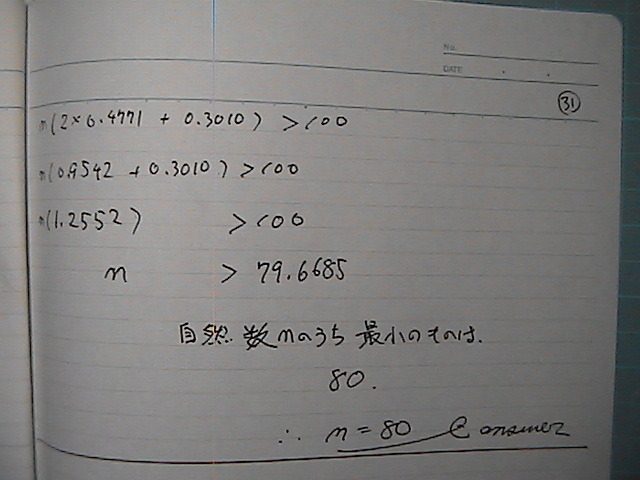 No.
DATE
31
n(2×0.4771 + 0.3010) >100
n(0.9542 + 0.3010) >100
n(1.2552) >100
n > 79.6685
自然数nのうち 最小のものは.
80.
∴ n = 80 answer